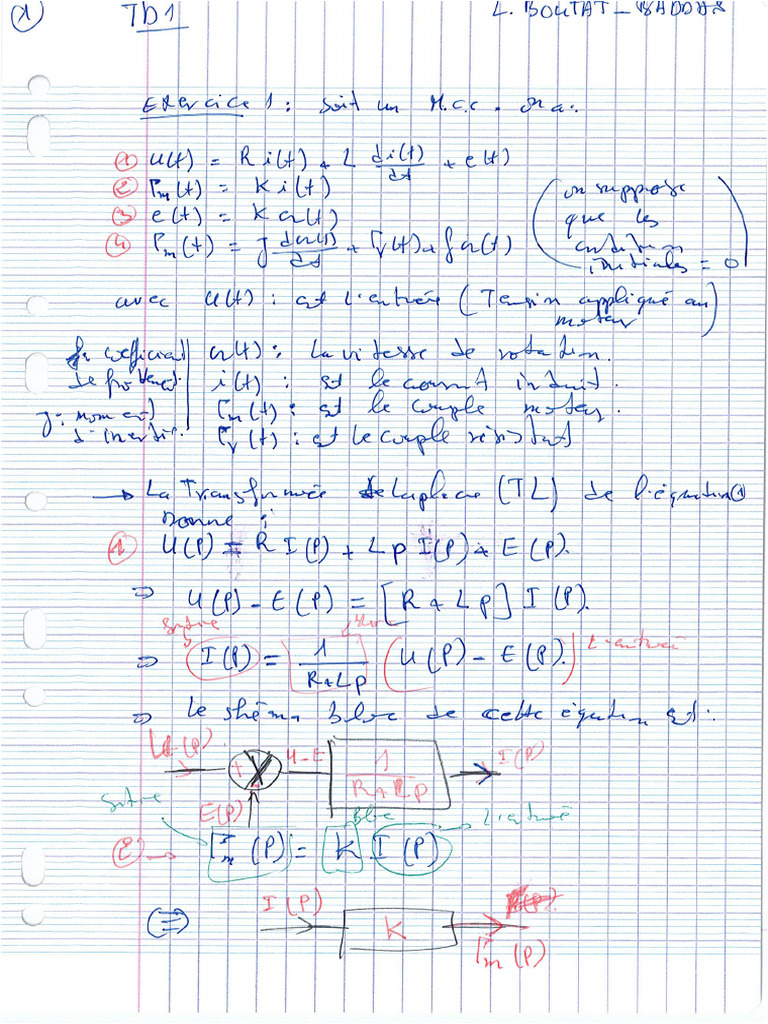 1 TD1 L. BOUTAT-BADDAS
Exercice 1 : Soit un M.C.C. on a :
① u(t) = R i(t) + L di(t)/dt + e(t)
② Γm(t) = K i(t)
③ e(t) = K Ω(t)
④ Γm(t) = J dΩ(t)/dt + Γr(t) + f Ω(t)
(on suppose
que les
condition
initiales = 0)
avec u(t) : est l'entrée (Tension appliqué au
moteur)
f: coefficient de frottement.
J: moment d'inertie.
Ω(t) : La vitesse de rotation.
i(t) : est le courant induit.
Γm(t) : est le couple moteur.
Γr(t) : est le couple résistant
→ La Transformée de Laplace (TL) de l'équation ①
Donne :
① U(P) = R I(P) + L P I(P) + E(P).
⇒ U(P) - E(P) = [R + L P] I(P).
Sortie Bloc L'entrée
⇒ I(P) = 1/(R+LP) (U(P) - E(P).)
⇒ Le shéma Bloc de cette équation est :
U(P) + - U-E 1/(R+LP) I(P)
E(P)
Sortie Bloc L'entrée
② → Γm(P) = K I(P)
⇔ I(P) K Γm(P)